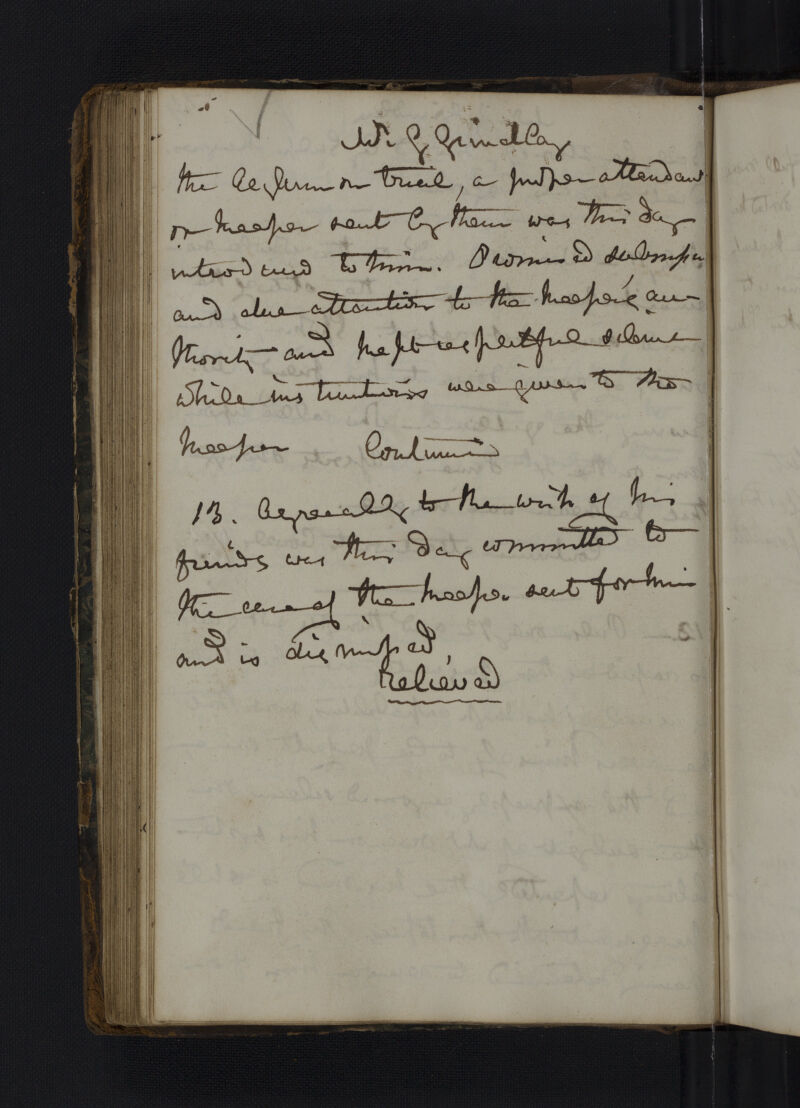 Mr. G Grindlay
the Asylum on trial, a proper attendant
or keeper sent by them was this day
introduced to him. Promised submiss
and due attention to the keeper's au-
thority and kept respectful silence
while instructions were given to the
keeper Continued
13. Agreeably to the wish of his
friends was this day committed to
the care of the keeper sent for him
and is dismissed,
Relieved